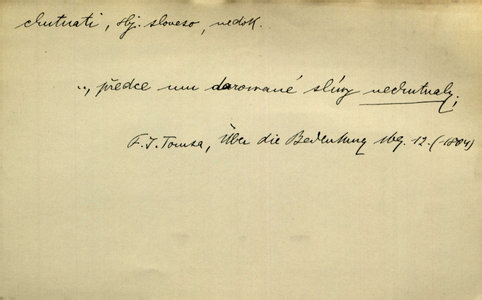 chutnati, sbj. sloveso, nedok.
.., předce mu darované slívy nechutnaly;
F. J. Tomsa, Über die Bedeutung 12. (1804)